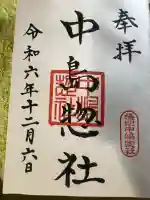 奉拝
中島惣社
令和六年十二月六日